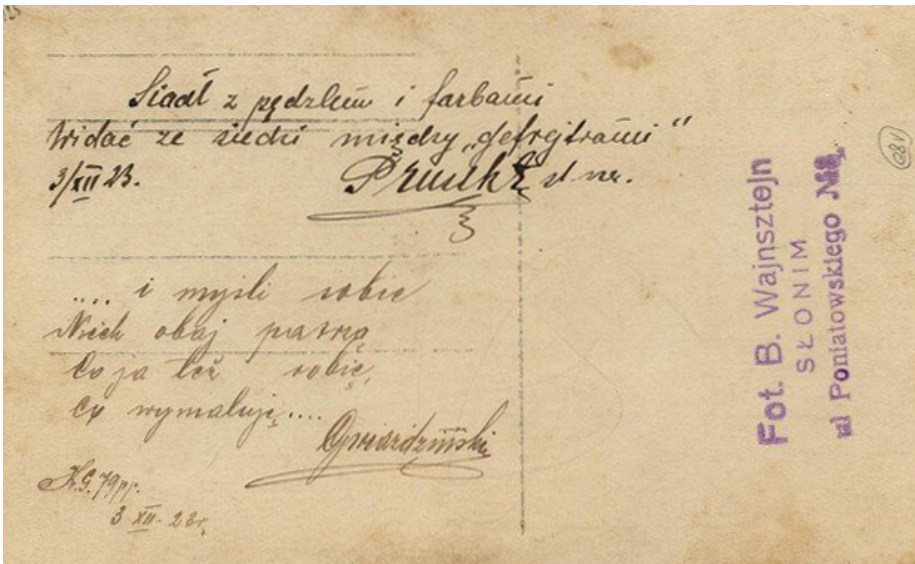 Siadł z pędzlem i farbami
Widać ze siedzi między „gefrejtrami"
3/XII 23.
.... i myśli sobie
Niech obaj patrzą
Co ja też robię,
Co wymaluję....
Gwiardziński
K.G. 79 pp.
3 XII - 23r.
Fot. B. Wajnsztejn
SŁONIM
ul Poniatowskiego
1281